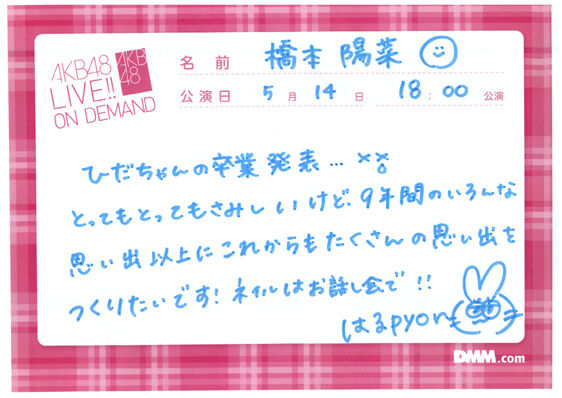 AKB48
LIVE!!
ON DEMAND
AKB
48
名前 橋本 陽菜
公演日 5月14日 18:00公演
ひだちゃんの卒業発表…
とってもとってもさみしいけど、9年間のいろんな
思い出以上にこれからもたくさんの思い出を
つくりたいです!ネイルはお話し会で!!
はるpyon
DMM.com